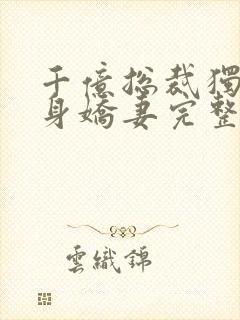 千億總裁獨
身嬌妻完整
雲織錦